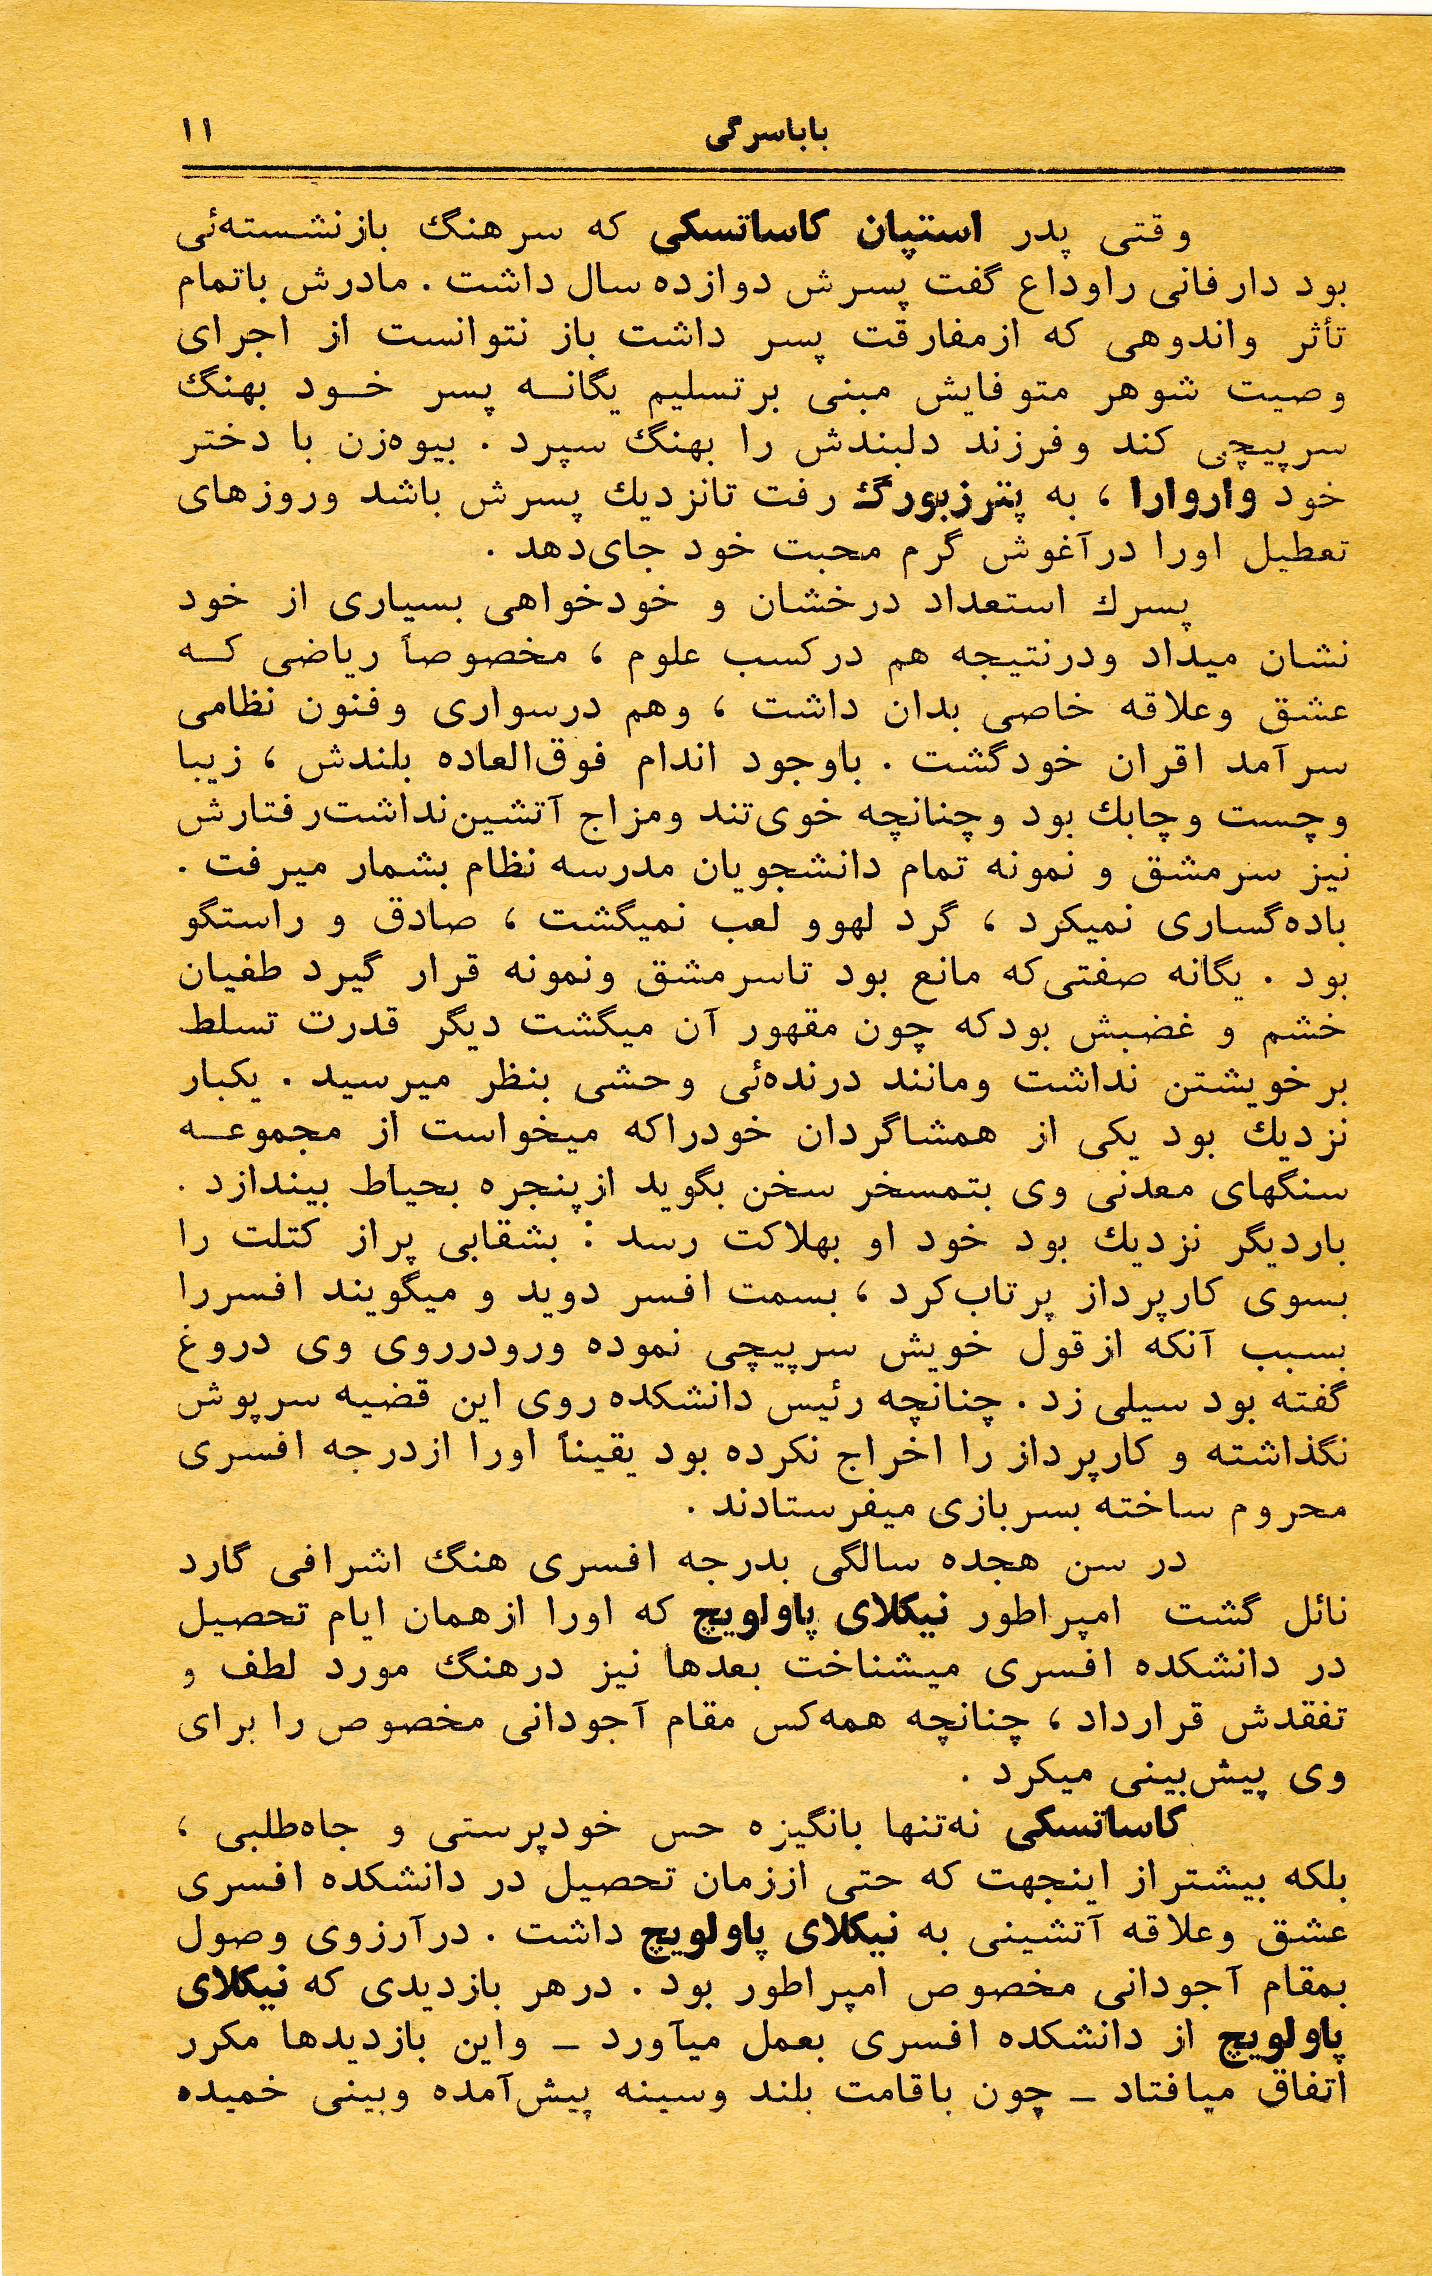 باباسرگی
۱۱
وقتی پدر استپان کاساتسکی که سرهنگ بازنشسته‌ئی
بود دارفانی راوداع گفت پسرش دوازده سال داشت . مادرش باتمام
تأثر واندوهی که ازمفارقت پسر داشت باز نتوانست از اجرای
وصیت شوهر متوفایش مبنی برتسلیم یگانه پسر خود بهنگ
سرپیچی کند وفرزند دلبندش را بهنگ سپرد . بیوه‌زن با دختر
خود واروارا ، به پترزبورگ رفت تانزدیك پسرش باشد وروزهای
تعطیل اورا درآغوش گرم محبت خود جای‌دهد .
پسرك استعداد درخشان و خودخواهی بسیاری از خود
نشان میداد ودرنتیجه هم درکسب علوم ، مخصوصاً ریاضی که
عشق وعلاقه خاصی بدان داشت ، وهم درسواری وفنون نظامی
سرآمد اقران خودگشت . باوجود اندام فوق‌العاده بلندش ، زیبا
وچست وچابك بود وچنانچه خوی‌تند ومزاج آتشین‌نداشت‌رفتارش
نیز سرمشق و نمونه تمام دانشجویان مدرسه نظام بشمار میرفت .
باده‌گساری نمیکرد ، گرد لهوو لعب نمیگشت ، صادق و راستگو
بود . یگانه صفتی‌که مانع بود تاسرمشق ونمونه قرار گیرد طفیان
خشم و غضبش بودکه چون مقهور آن میگشت دیگر قدرت تسلط
برخویشتن نداشت ومانند درنده‌ئی وحشی بنظر میرسید . یکبار
نزدیك بود یکی از همشاگردان خودراکه میخواست از مجموعه
سنگهای معدنی وی بتمسخر سخن بگوید ازپنجره بحیاط بیندازد .
باردیگر نزدیك بود خود او بهلاکت رسد : بشقابی پراز کتلت را
بسوی کارپرداز پرتاب‌کرد ، بسمت افسر دوید و میگویند افسررا
بسبب آنکه ازقول خویش سرپیچی نموده ورودرروی وی دروغ
گفته بود سیلی زد . چنانچه رئیس دانشکده روی این قضیه سرپوش
نگذاشته و کارپرداز را اخراج نکرده بود یقیناً اورا ازدرجه افسری
محروم ساخته بسربازی میفرستادند .
در سن هجده سالگی بدرجه افسری هنگ اشرافی گارد
نائل گشت امپراطور نیکلای پاولویچ که اورا ازهمان ایام تحصیل
در دانشکده افسری میشناخت بعدها نیز درهنگ مورد لطف و
تفقدش قرارداد ، چنانچه همه‌کس مقام آجودانی مخصوص را برای
وی پیش‌بینی میکرد .
کاساتسکی نه‌تنها بانگیزه حس خودپرستی و جاه‌طلبی ،
بلکه بیشتراز اینجهت که حتی اززمان تحصیل در دانشکده افسری
عشق وعلاقه آتشینی به نیکلای پاولویچ داشت . درآرزوی وصول
بمقام آجودانی مخصوص امپراطور بود . درهر بازدیدی که نیکلای
پاولویچ از دانشکده افسری بعمل میآورد ـ واین بازدیدها مکرر
اتفاق میافتاد ـ چون باقامت بلند وسینه پیش‌آمده وبینی خمیده